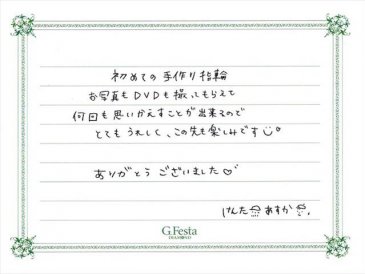 初めての手作り指輪
お写真もDVDも撮ってもらえて
何回も思いかえすことが出来るので
とてもうれしく、この先も楽しみです
ありがとうございました♡
けんた あすか
G.Festa
DIAMOND